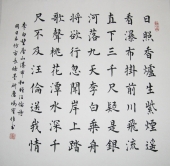 日照香爐生紫煙遙
看瀑布掛前川飛流
直下三千尺疑是銀
河落九天李白乘舟
將欲行忽聞岸上踏
歌聲桃花潭水深千
尺不及汪倫送我情
李白望廬山瀑布和贈汪倫詩